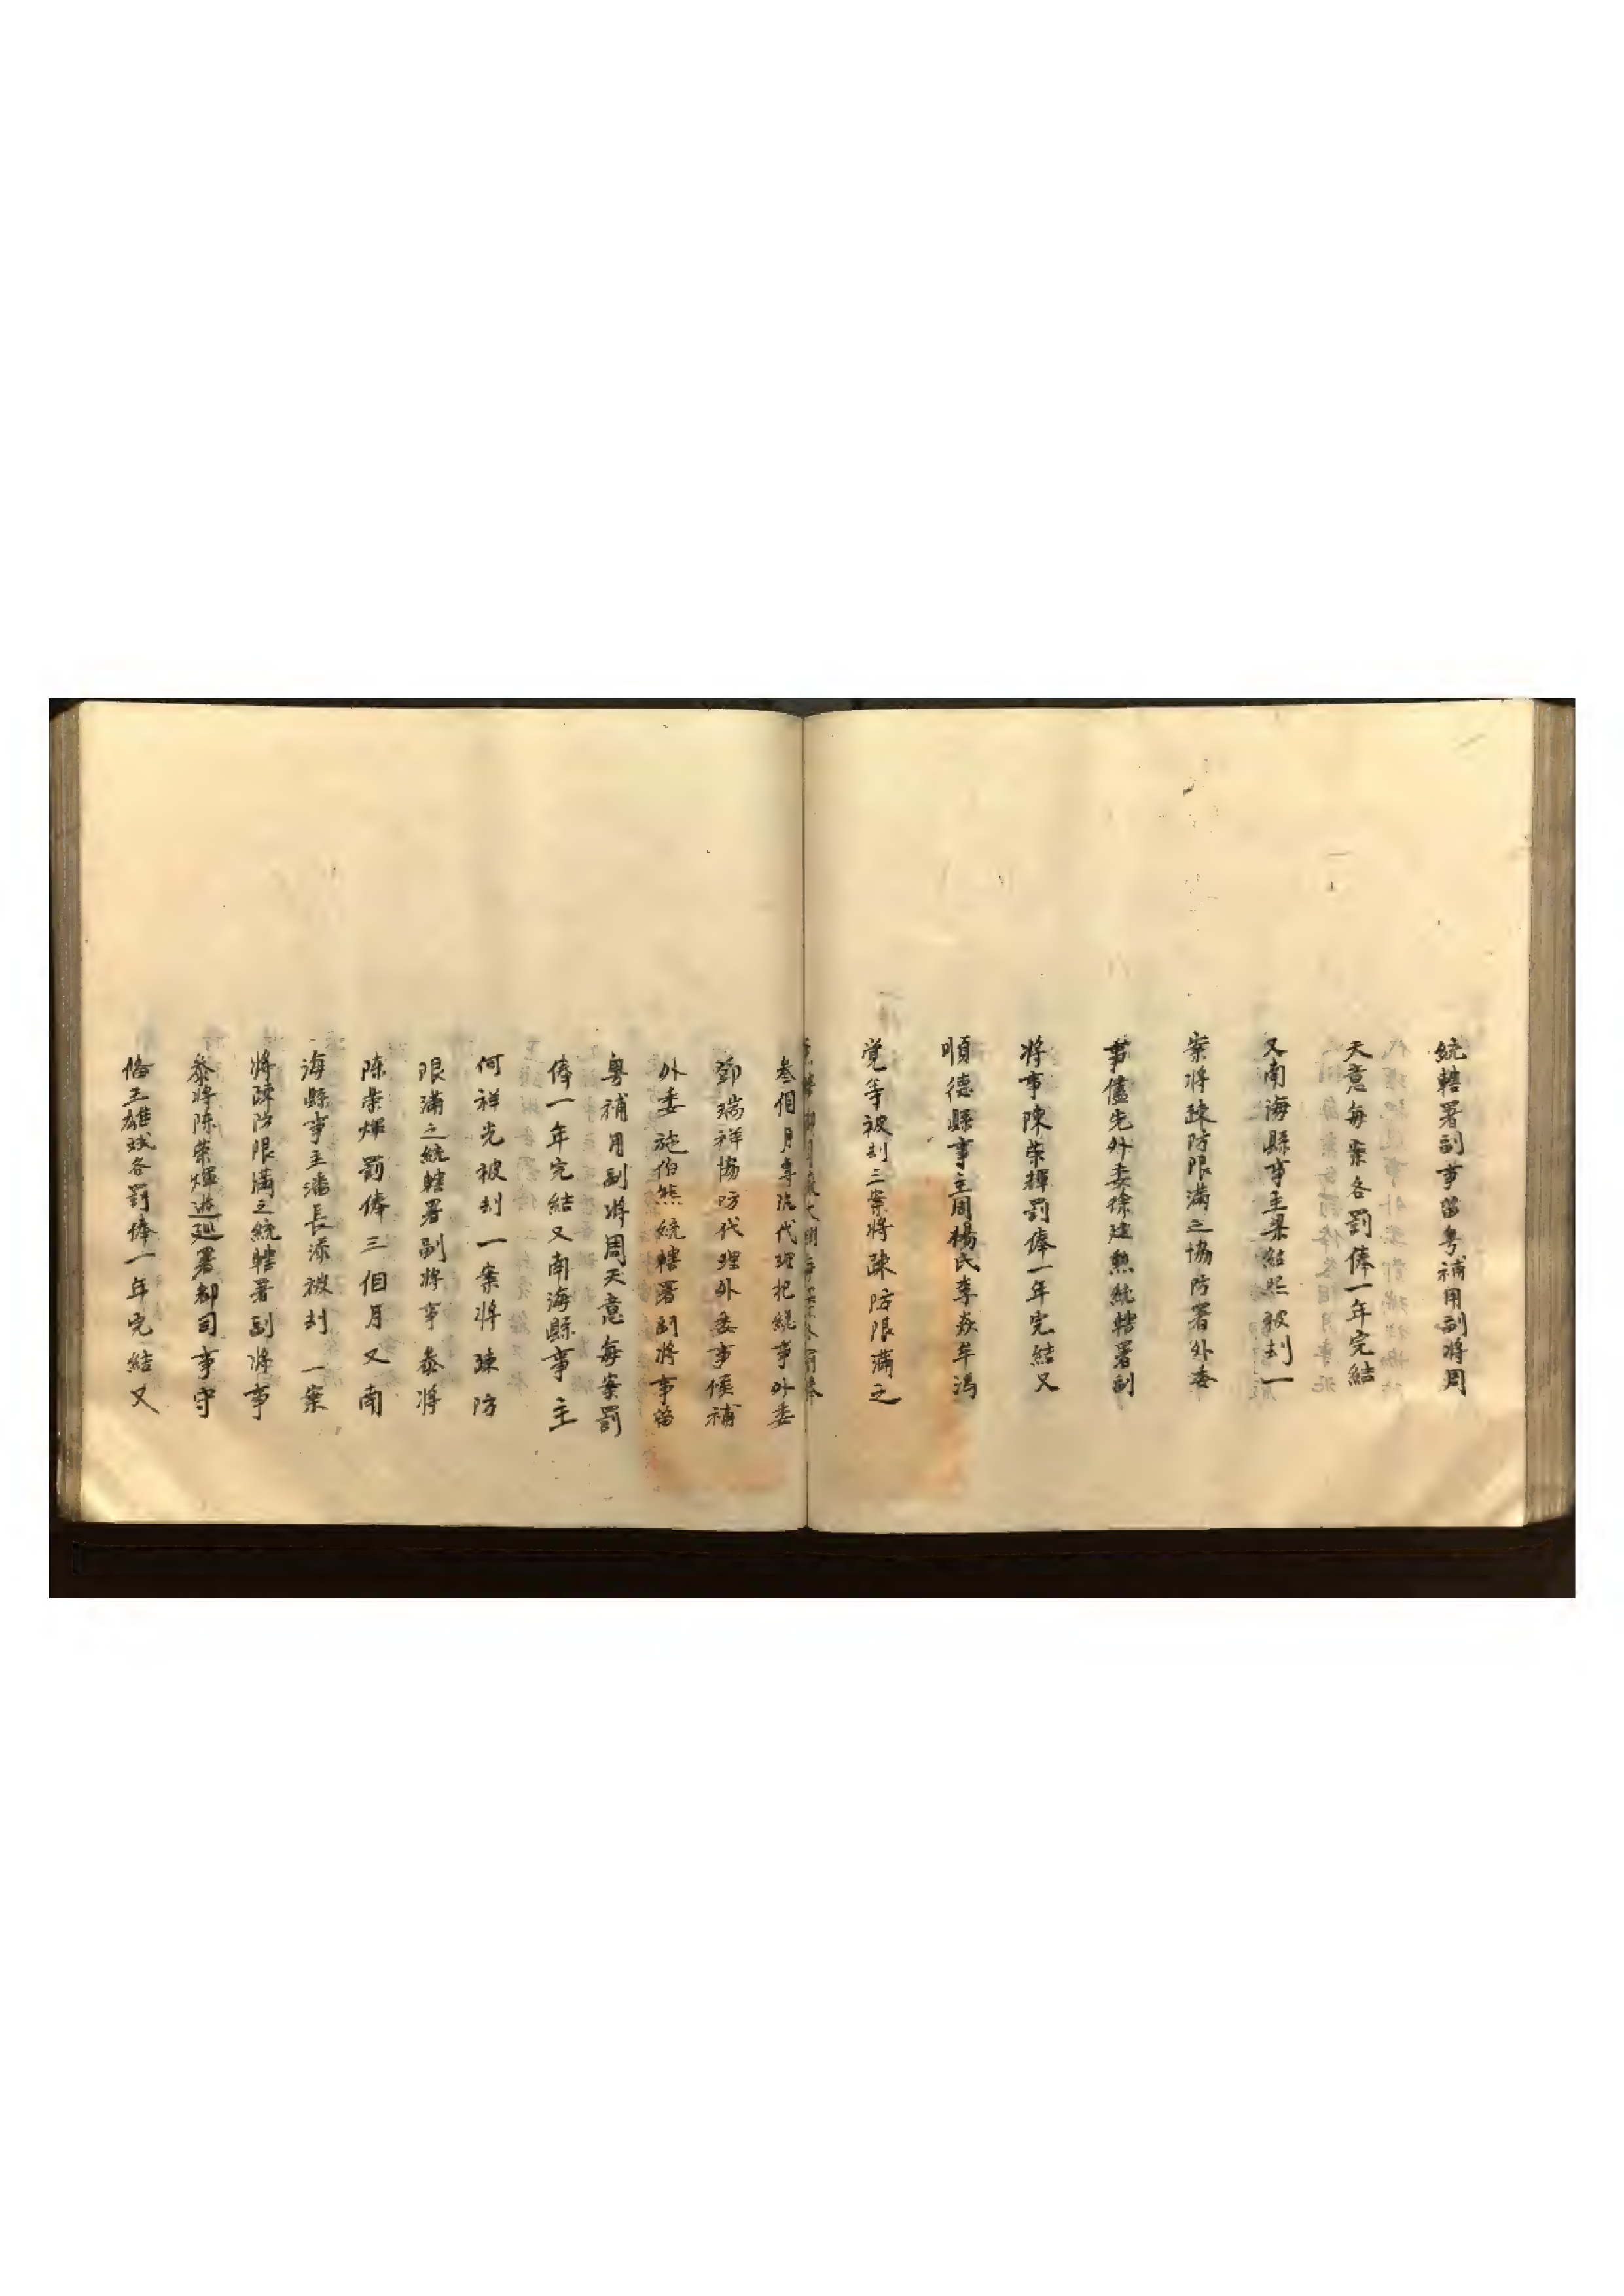 統轄署副事留粤補用副將周
天意每案各罰俸一年完結
又南海縣事主梁紹熙被刦一
案將疎防限滿之協防署外委
事儘先外委徐建勲統轄署副
將事陳荣輝罰俸一年完結又
順德縣事主周楊氏李牟馮
覚等被刦三案將疎防限滿之
叁個月專汛代理把總事外委
鄧瑞祥協防代理外委事候補
外委施伯熊統轄署副將事留
粤補用副將周天意每案罰
俸一年完結又南海縣事主
何祥光被刦一案將疎防
限滿之統轄署副將事叅將
陈荣煇罰俸三個月又南
海縣事主潘長添被刦一案
將疎防限滿之統轄署副將事
叅將陈荣煇遊廵署都司事守
俻王雄斌各罰俸一年完結又